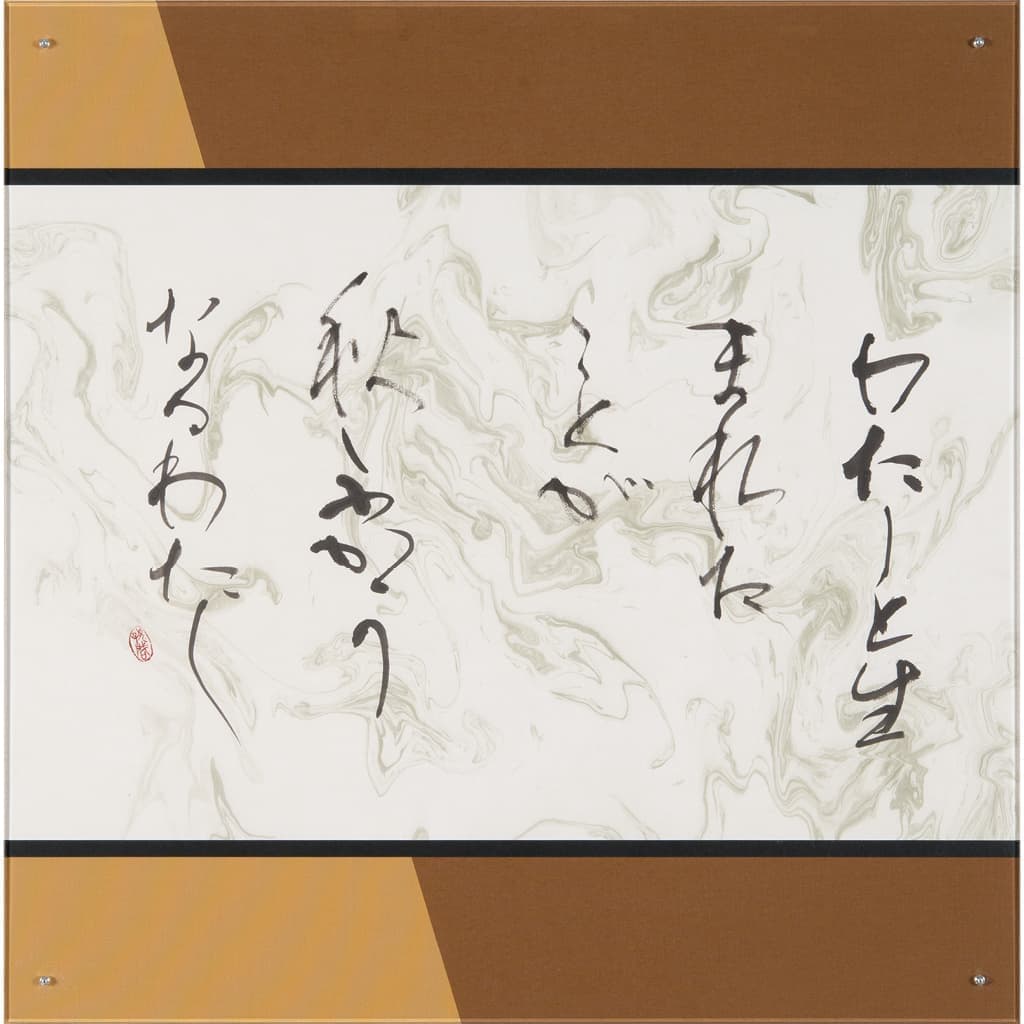 わたしと生
まれた
ことが
秋ふかう
なるわたし